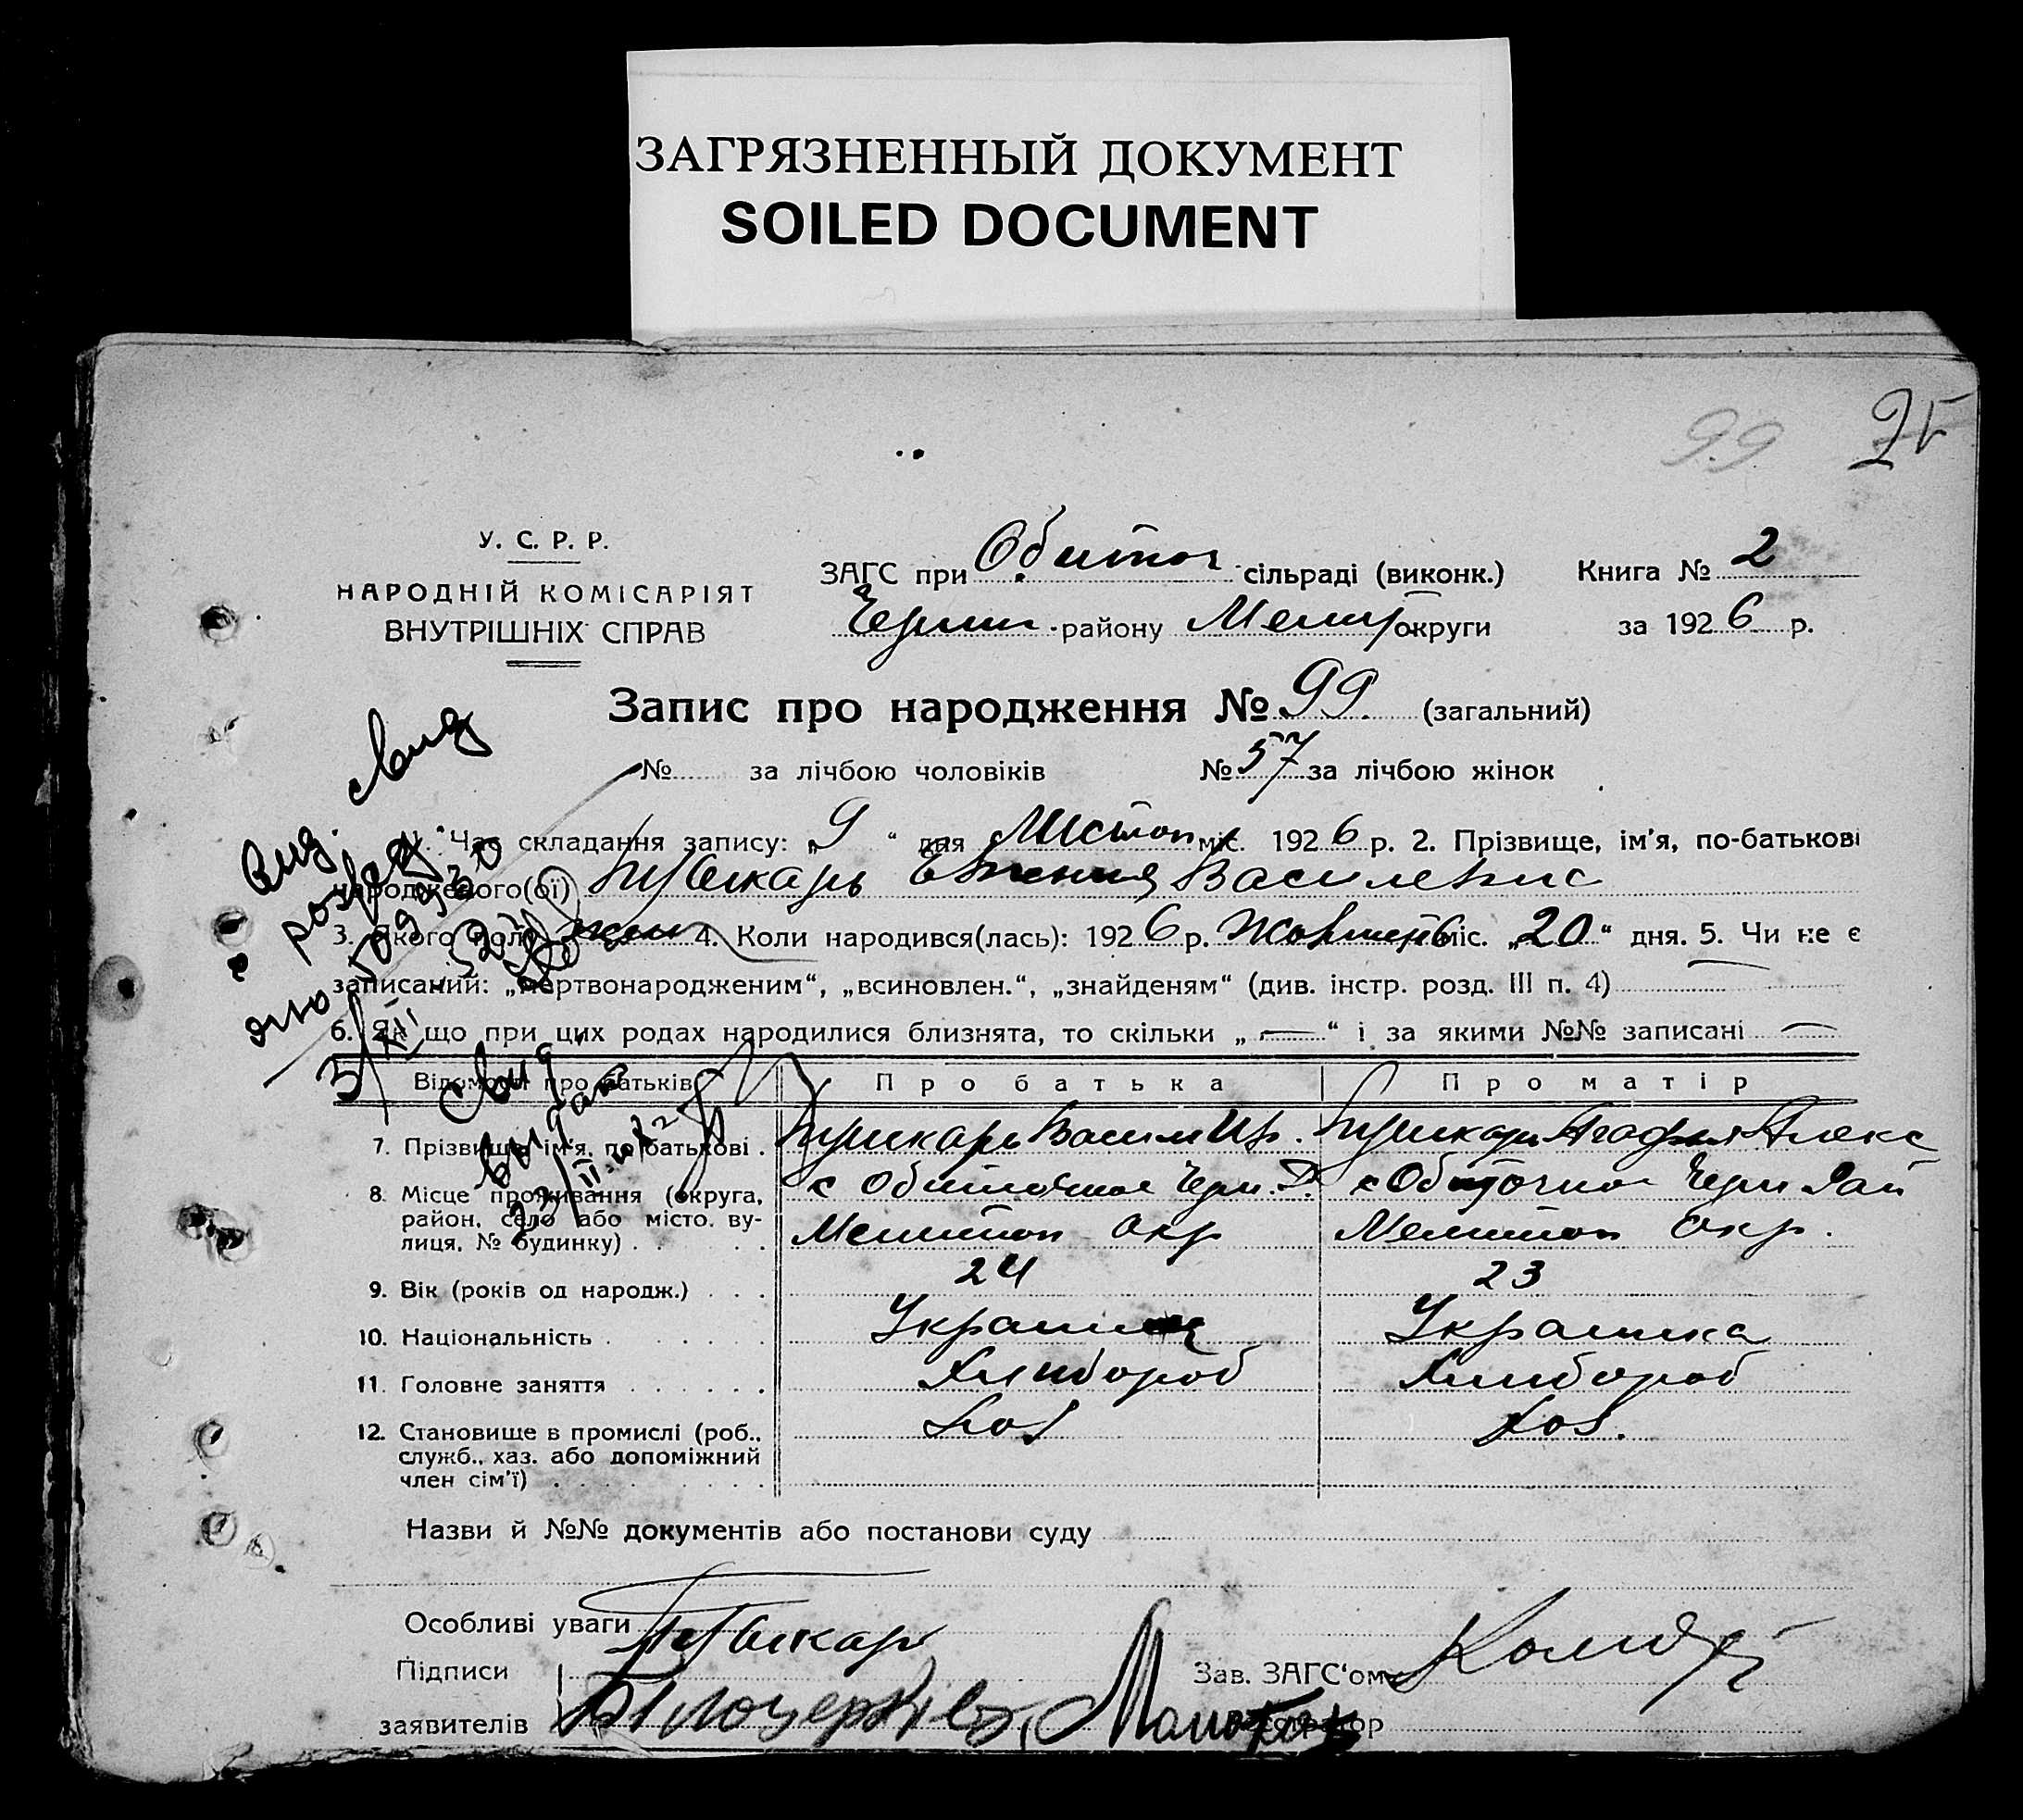 ЗАГРЯЗНЕННЫЙ ДОКУМЕНТ
SOILED DOCUMENT
99
У. С. Р. Р.
НАРОДНІЙ КОМІСАРІЯТ
ВНУТРІШНІХ СПРАВ
ЗАГС при Обиточ сільраді (виконк.)
Книга № 2
Черниг району Мелит округи
за 1926 р.
Запис про народження № 99 (загальний)
№ за лічбою чоловіків № 57 за лічбою жінок
1. Час складання запису: „9“ дня Листоп міс. 1926 р. 2. Прізвище, ім'я, по-батькові
народженого(ої) Пушкарь Евгения Василевна
3. Якого полу жін 4. Коли народився(лась): 1926 р. Жовтень міс. „20“ дня. 5. Чи не є
записаний: „мертвонародженим“, „всиновлен.“, „знайденям“ (див. інстр. розд. III п. 4)
6. Як що при цих родах народилися близнята, то скільки „—“ і за якими №№ записані —
Відомості про батьків Про батька Про матір
7. Прізвище, ім'я, по батькові . Пушкарь Васили Пушкарь Агафья Алекс
8. Місце проживання (округа, с Обиточное Черн. Р. с Обиточное Черн Рай
район, село або місто, ву- Мелитоп Окр Мелитоп Окр.
лиця, № будинку)
9. Вік (років од народж.) 24 23
10. Національність Украинец Украинка
11. Головне заняття Хлибороб Хлибороб
12. Становище в промислі (роб., Хоз Хоз.
служб., хаз. або допоміжний
член сім'ї)
Назви й №№ документів або постанови суду
Особливі уваги
Пушкарь
Підписи
Зав. ЗАГС'ом
заявителів
Реєстратор